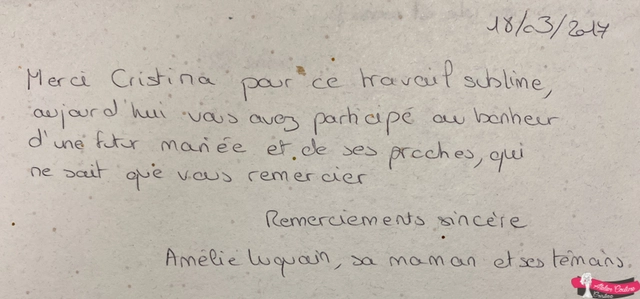 18/03/2017
Merci Cristina pour ce travail subline,
aujourd'hui vous avez participé au bonheur
d'une futur mariée et de ses proches, qui
ne sait que vous remercier
Remerciements sincère
Amélie Luquain, sa maman et ses témoins.